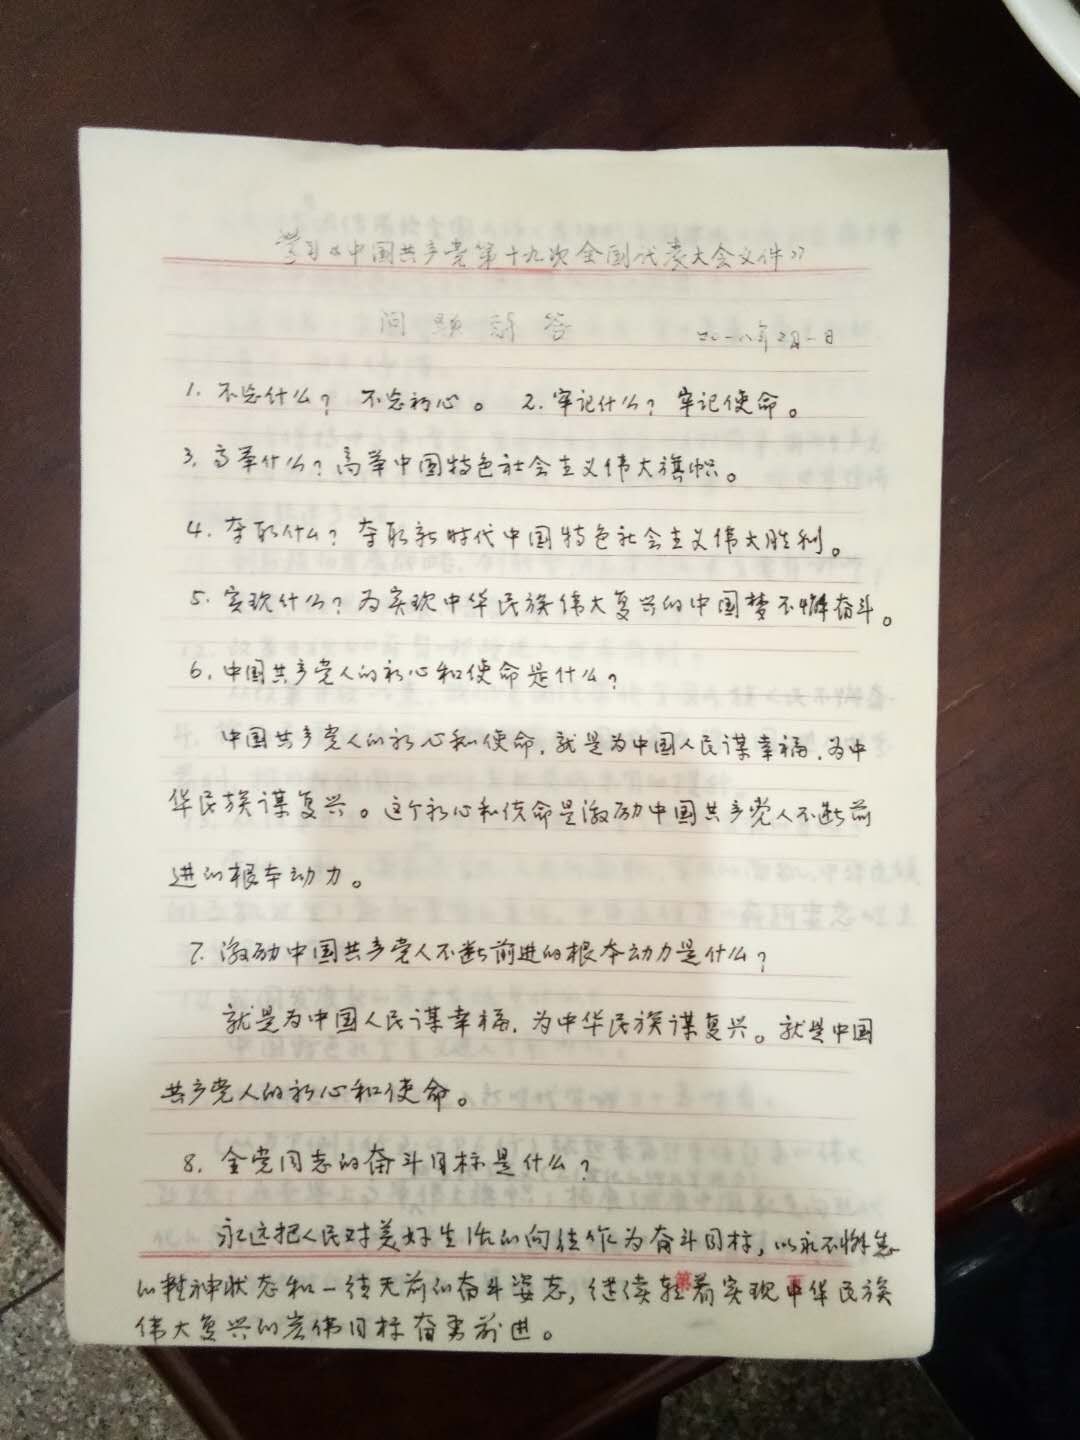 学习《中国共产党第十九次全国代表大会文件》
问题解答 二〇一八年2月一日
1. 不忘什么？ 不忘初心。 2. 牢记什么？ 牢记使命。
3. 高举什么？高举中国特色社会主义伟大旗帜。
4. 夺取什么？ 夺取新时代中国特色社会主义伟大胜利。
5. 实现什么？为实现中华民族伟大复兴的中国梦不懈奋斗。
6. 中国共产党人的初心和使命是什么？
中国共产党人的初心和使命，就是为中国人民谋幸福，为中
华民族谋复兴。这个初心和使命是激励中国共产党人不断前
进的根本动力。
7. 激励中国共产党人不断前进的根本动力是什么？
就是为中国人民谋幸福，为中华民族谋复兴。就是中国
共产党人的初心和使命。
8. 全党同志的奋斗目标是什么？
永远把人民对美好生活的向往作为奋斗目标，以永不懈怠
的精神状态和一往无前的奋斗姿态，继续朝着实现中华民族
伟大复兴的宏伟目标奋勇前进。
第 页